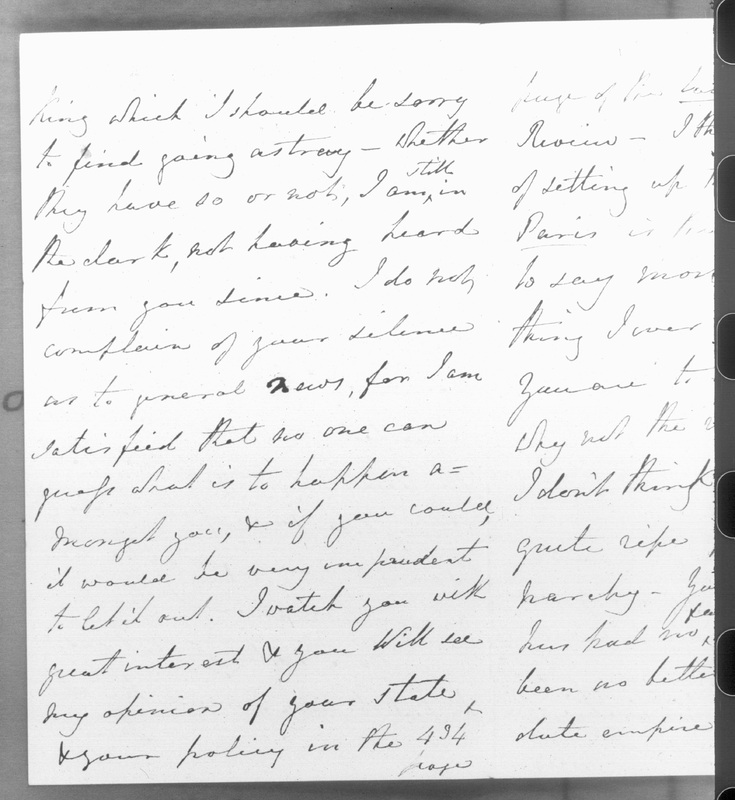 King which I should be sorry
to find going astray – Whether
they have so or not, I am still in
the dark, not having heard
from you since. I do not
complain of your silence
as to general news, for I am
satisfied that no one can
guess what is to happen a=
mongst you, & if you could,
it would be very imprudent
to let it out. I watch you with
great interest & you will see
my opinion of your state
& your policy in the 434
page
page of the
Review – I th
of setting up t
Paris is
to say mor
thing I ever
You are to
why not the
I don't think
quite ripe
narchy – Yo
has had no
been no bette
date empire